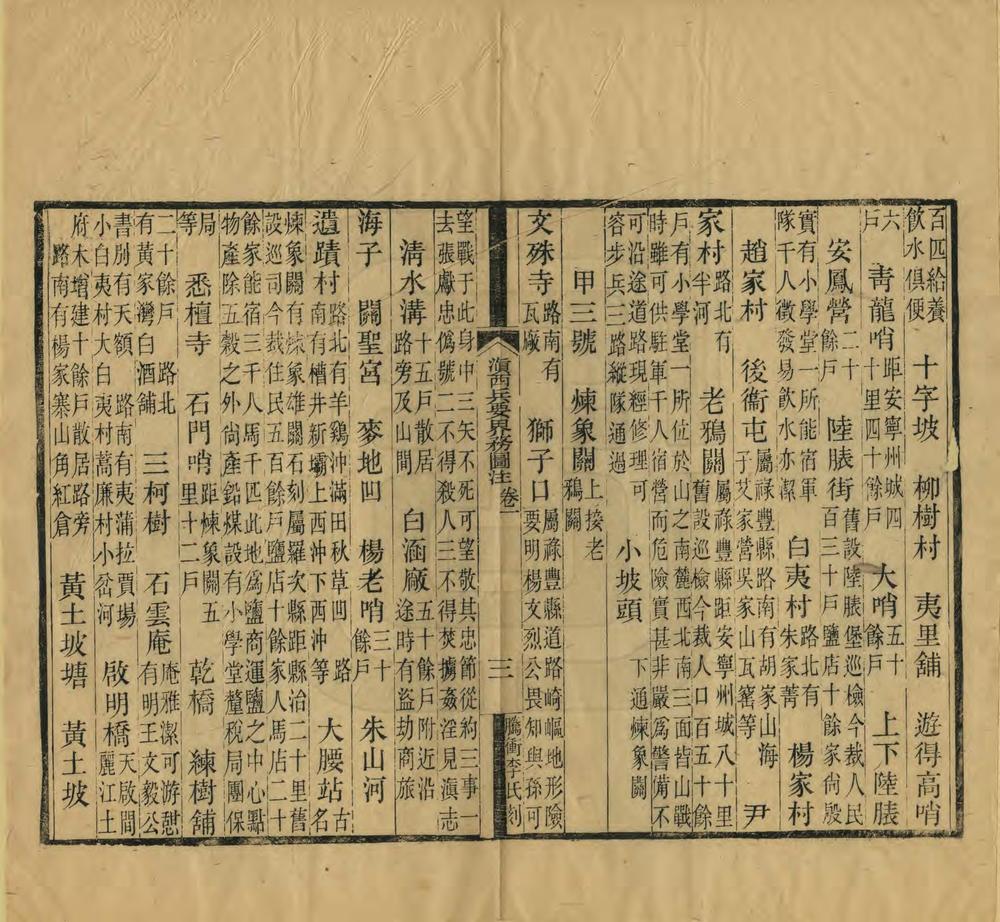 百匹給養飲水俱便 十字坡 柳樹村 夷里舖 遊得高哨
六戶 靑龍哨 距安寧州城四十里四十餘戶 大哨 五十餘戶 上下陸脿
安鳳營 二十餘戶 陸脿街 舊設陸脿堡巡檢今裁人民百三十戶鹽店十餘家尙殷
實有小學堂一所能宿軍隊千人徵發易飲水亦潔 白夷村 路北有朱家菁 楊家村
趙家村 後衞屯 屬祿豐縣路南有胡家山海子艾家營吳家山瓦窰等 尹
家村 路北有半河 老鴉關 屬祿豐縣距安寧州城八十里舊設巡檢今裁人口百五十餘
戶有小學堂一所位於山之南麓西北南三面皆山戰時雖可供駐軍千人宿營而危險實甚非嚴爲警備不
可沿途道路現經修理可容步兵三路縱隊通過 小坡頭 下通煉象關
甲三號 煉象關 上接老鴉關
文殊寺 路南有瓦廠 獅子口 屬祿豐縣道路崎嶇地形險要明楊文烈公畏知與孫可
滇西兵要界務圖注 卷一 三 騰衝李氏刻
望戰于此身中三矢不死可望敬其忠節從約三事一去張獻忠僞號二不得殺人三不得焚擄姦淫見滇志
淸水溝 十五戶散居路旁及山間 白涵廠 五十餘戶附近沿途時有盜劫商旅
海子 關聖宮 麥地凹 楊老哨 三十餘戶 朱山河
遺蹟村 路北有羊鷄冲滿田秋草凹 路南有槽井新壩上西冲下西冲等 大腰站 古名
煉象關有煉象雄關石刻屬羅次縣距縣治二十里舊設巡司今裁住民五百餘戶鹽店十餘家人馬店二十
餘家能宿三千人馬千匹此地爲鹽商運鹽之中心點物產除五穀之外尙產鉛煤設有小學堂釐稅局團保
局等 悉檀寺 石門哨 距煉象關五里十二戶 乾橋 練樹舖
二十餘戶 路北有黃家灣白酒舖 三柯樹 石雲庵 庵雅潔可游憇有明王文毅公
書有天額 路南有夷蒲拉賈場小白夷村大白夷村蒿廉村小岔河 啟明橋 天啟間麗江土
府木增建十餘戶散居路旁路南有楊家寨山角紅倉 黃土坡塘 黃土坡